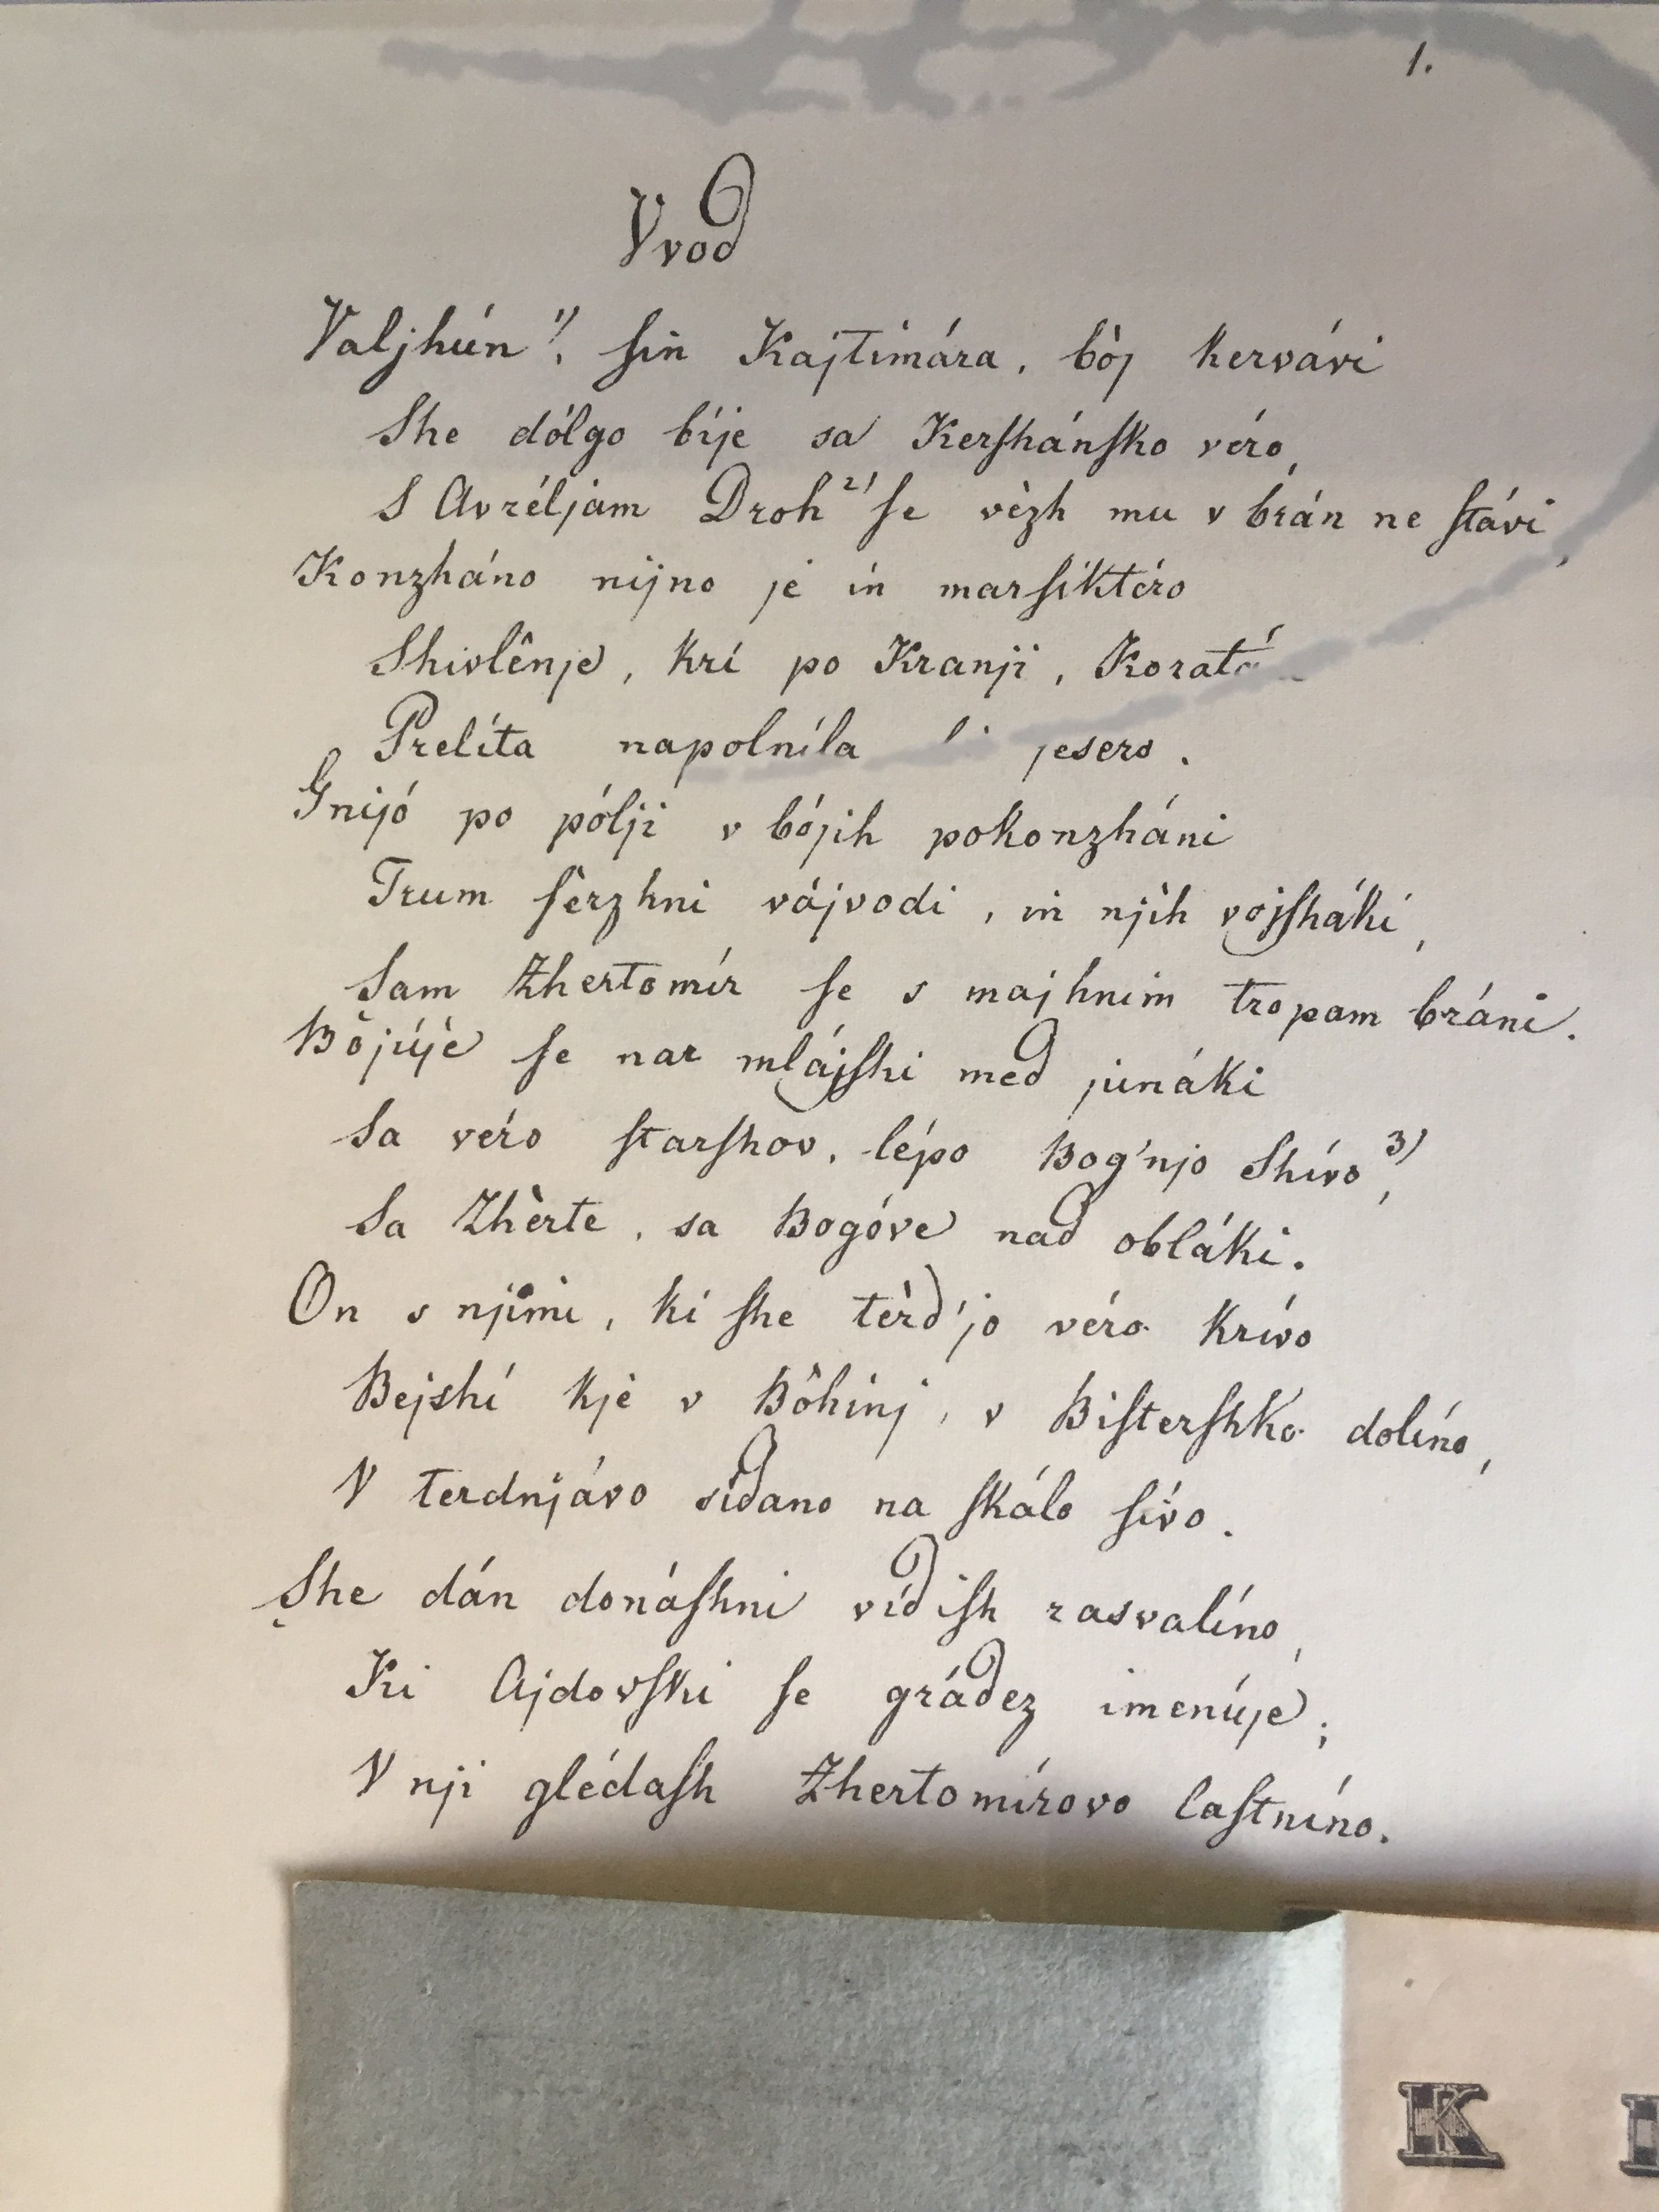 1.
Vvod
Valjhún 1), ſin Kajtimára, bòj kervávi
She dólgo bíje sa Kerſhánſko véro,
S Avréljam Droh 2) ſe vèzh mu v brán ne ſtávi,
Konzháno nijno je in marſiktéro
Shivlênje, krí po Kranji,
Prelíta napolníla jesero.
Gnijó po pólji v bójih pokonzháni
Trum ſèrzhni vájvodi, in njìh vojſháki,
Sam Zhertomír ſe s majhnim tropam bráni.
Bojúje ſe nar mlájſhi med junáki
Sa véro ſtarſhov, lépo Bog'njo Shívo 3),
Sa Zhèrte, sa Bogóve nad obláki.
On s njimi, ki ſhe tèrd'jo véro krívo
Bejshí kjè v Bôhinj, v Biſterſhko dolíno,
V terdnjávo sídano na ſkálo ſívo.
She dán donáſhni vídiſh rasvalíno,
Ki Ajdovſki ſe grádez imenúje;
V nji glédaſh Zhertomírovo laſtníno.
K